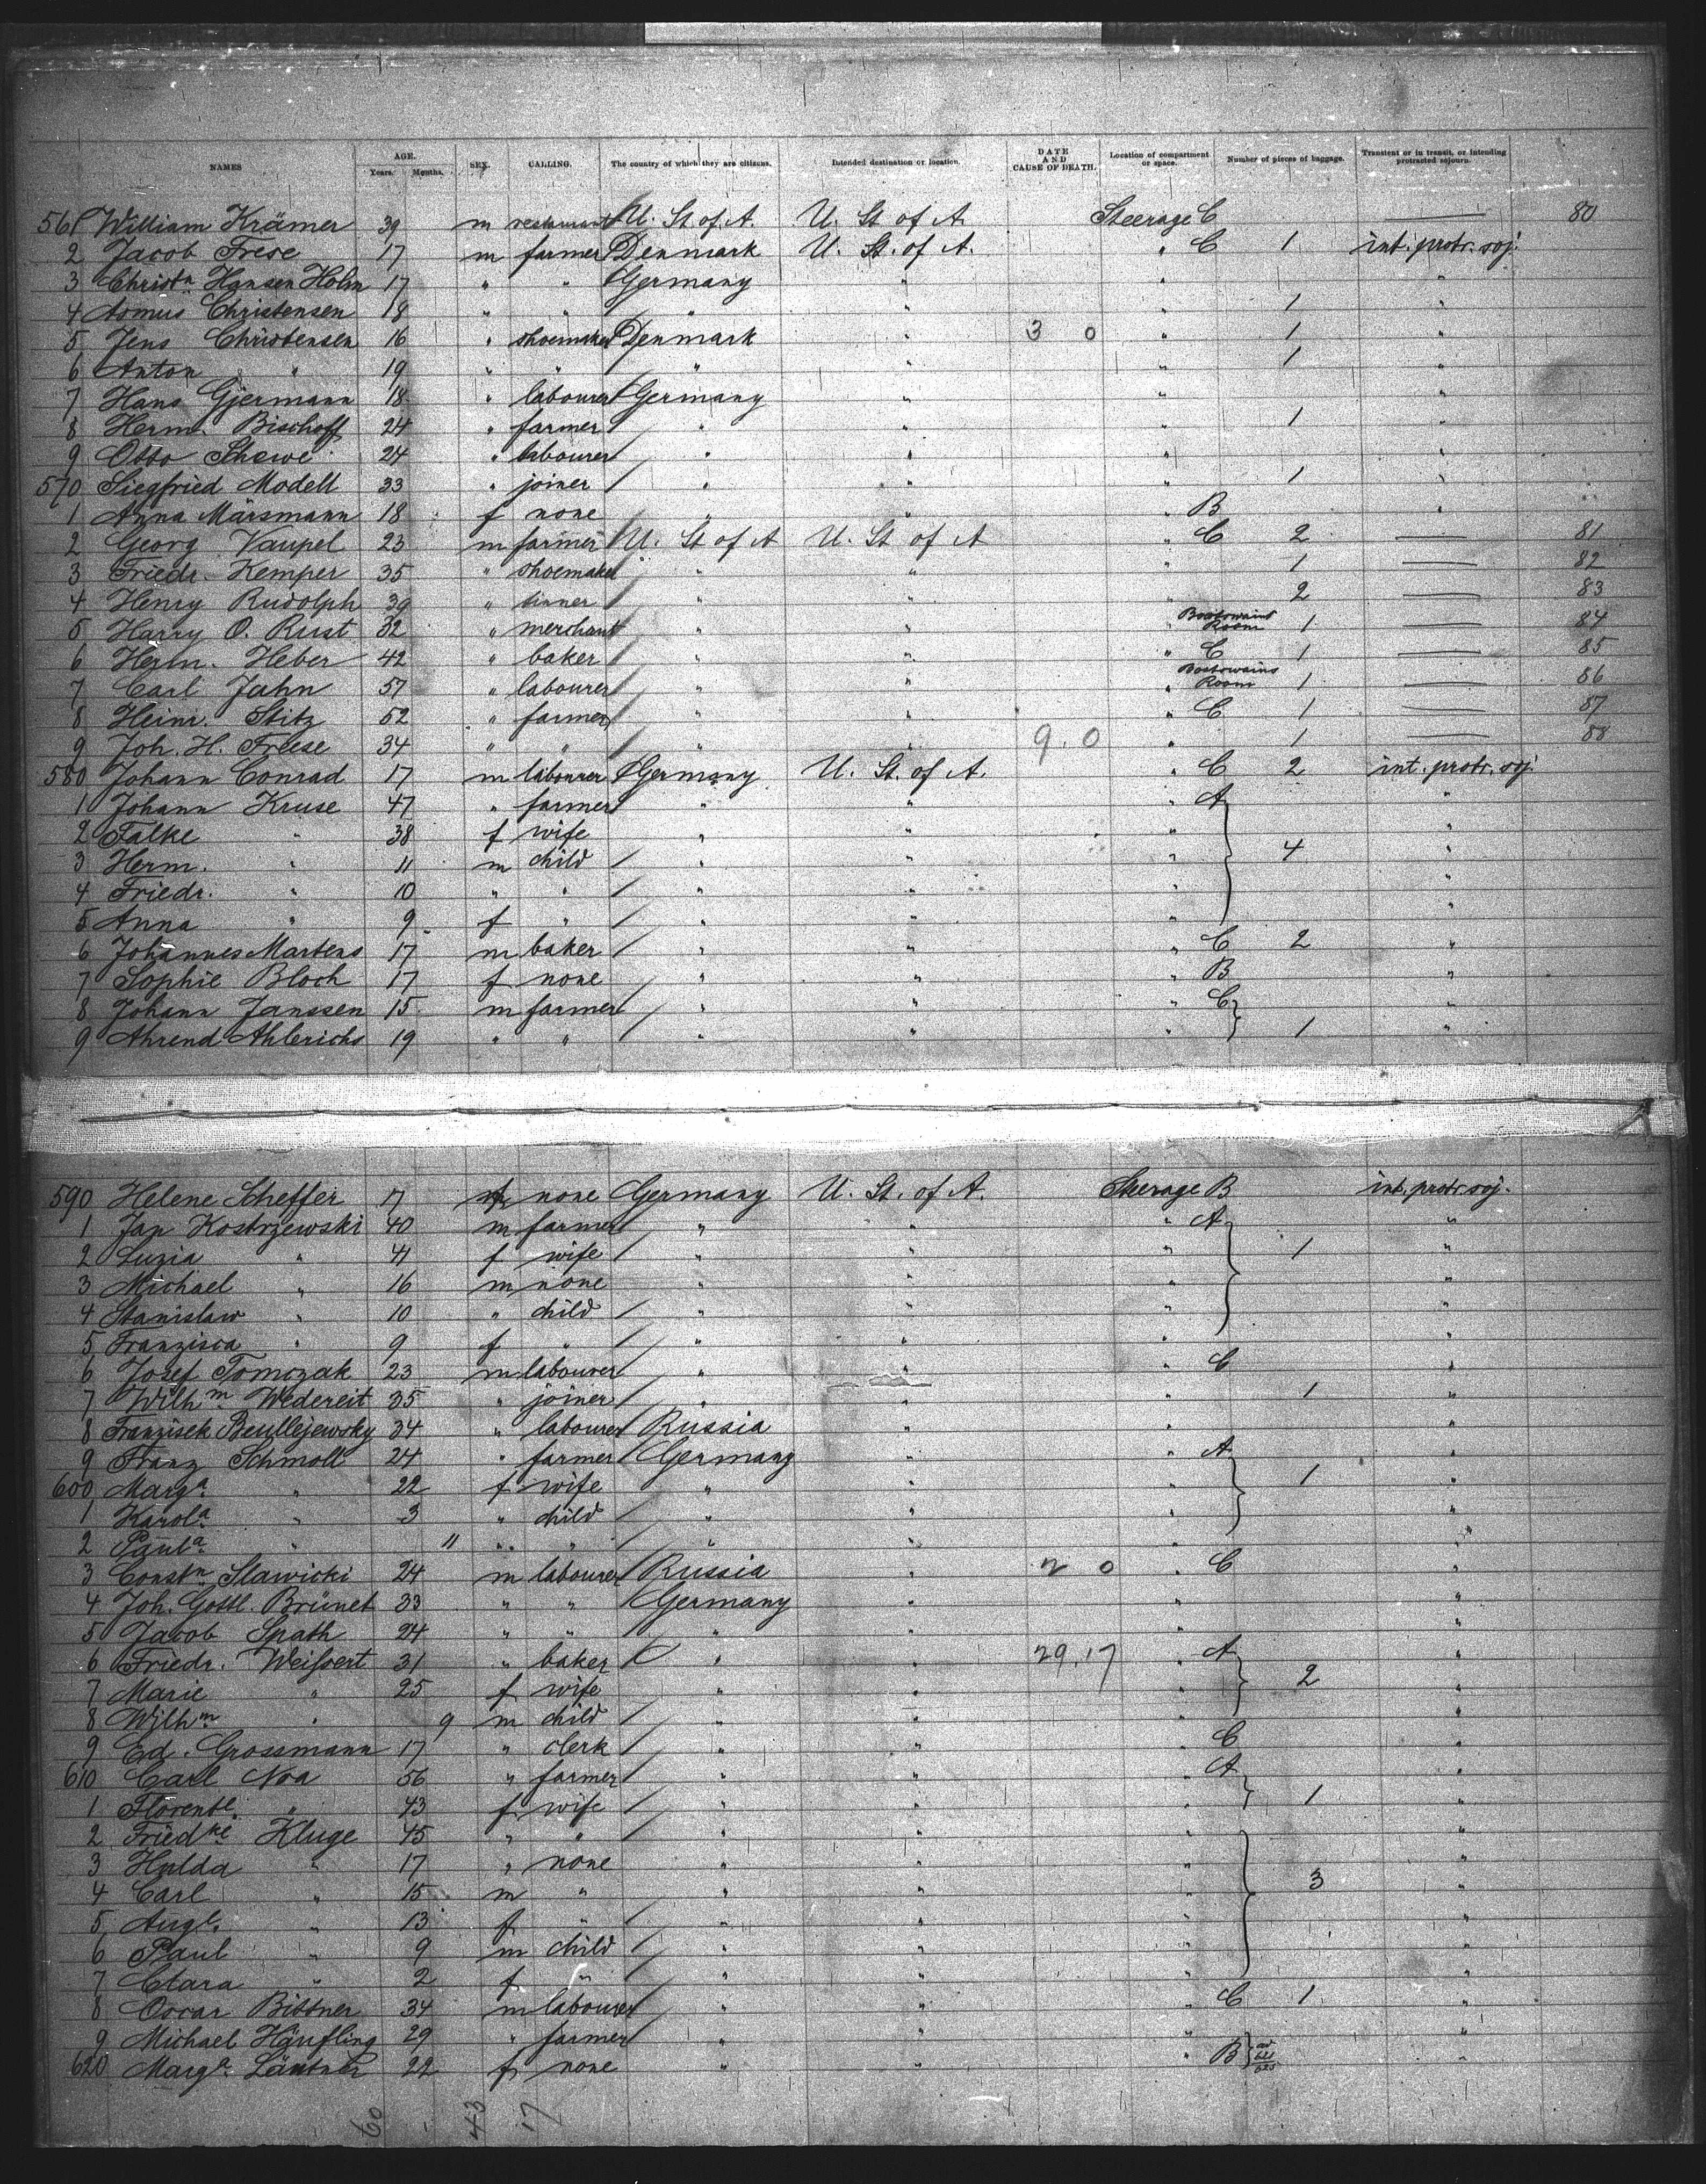 NAMES AGE. Years. Months. SEX. CALLING. The country of which they are citizens. Intended destination or location. DATE AND CAUSE OF DEATH. Location of compartment or space. Number of pieces of baggage. Transient or in transit, or intending protracted sojourn.
561 William Krämer 39 m restaurant U. St. of A. U. St. of A. Steerage C —— 80
2 Jacob Frese 17 m farmer Denmark U. St. of A. " C 1 int. protr. soj.
3 Christn Hansen Holm 17 " " Germany " " "
4 Asmus Christensen 18 " " " " " 1 "
5 Jens Christensen 16 " shoemaker Denmark " 3 0 " 1 "
6 Anton " 19 " " " " " 1 "
7 Hans Gjermann 18 " labourer Germany " " "
8 Herm. Bischoff 24 " farmer " " " 1 "
9 Otto 24 " labourer " " " "
570 Siegfried Modell 33 " joiner " " " 1 "
1 Anna Märsmann 18 f none " " B "
2 Georg Vaupel 23 m farmer U. St of A U. St of A " C 2 —— 81
3 Friedr. Kemper 35 " shoemaker " " " 1 —— 82
4 Henry Rudolph 39 " tinner " " 2 —— 83
5 Harry O. Rust 32 " merchant " " " Boatswains Room 1 —— 84
6 Herm. Heber 42 " baker " " " C 1 —— 85
7 Carl Jahn 57 " labourer " " " Boatswains Room 1 —— 86
8 Heinr. Stitz 52 " farmer " " " C 1 —— 87
9 Joh. H. Freese 34 " " " " 9. 0 " 1 —— 88
580 Johann Conrad 17 m labourer Germany U. St. of A. " C 2 int. protr. soj.
1 Johann Kruse 47 " farmer " " " A "
2 Falke " 38 f wife " " " "
3 Herm. " 11 m child " " " 4 "
4 Friedr. " 10 " " " " " "
5 Anna " 9 f " " " " "
6 Johannes Martens 17 m baker " " " C 2 "
7 Sophie Bloch 17 f none " " " B "
8 Johann Janssen 15 m farmer " " " C "
9 Ahrend Ahlerichs 19 " " " " " 1 "
590 Helene Scheffer 17 f none Germany U. St. of A. Steerage B int. protr. soj.
1 Jan Kostrzewski 40 m farmer " " " A "
2 Luzia " 41 f wife " " " 1 "
3 Michael " 16 m none " " " "
4 Stanislaw " 10 " child " " " "
5 Franzisca " 9 f " " " " "
6 Josef Tomczak 23 m labourer " " " C "
7 Wilhm Wedereit 35 " joiner " " " 1 "
8 Franzisek Beullejewsky 34 " labourer Russia " " "
9 Franz Schmoll 24 " farmer Germany " " A "
600 Marga " 22 f wife " " " 1 "
1 Karola " 3 " child " " " "
2 Paula " 11 " " " " " "
3 Constn Slawicki 24 m labourer Russia " 2 0 " C "
4 Joh. Gottl. Brünet 33 " " Germany " " "
5 Jacob Spath 24 " " " " " "
6 Friedr. Weissert 31 " baker " " 29.17 " A "
7 Marie " 25 f wife " " " 2 "
8 Wilhm " 9 m child " " " "
9 Ed. Grossmann 17 " clerk " " C "
610 Carl Noa 56 " farmer " " " A "
1 Florentl. " 43 f wife " " " 1 "
2 Friedke Kluge 45 " " " " " "
3 Hulda " 17 " none " " " "
4 Carl " 15 m " " " " 3 "
5 Augl. " 13 f " " " " "
6 Paul " 9 m child " " " "
7 Clara " 2 f " " " " "
8 Oscar Bittner 34 m labourer " " " C 1 "
9 Michael Häufling 29 " farmer " " " "
620 Marga Läutner 22 f none " " " B "
60 43 17